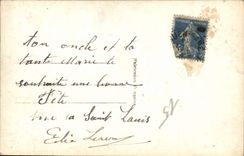 ton oncle et ta
tante Marie te
souhaite une bonne
Fête
vive la Saint Louis